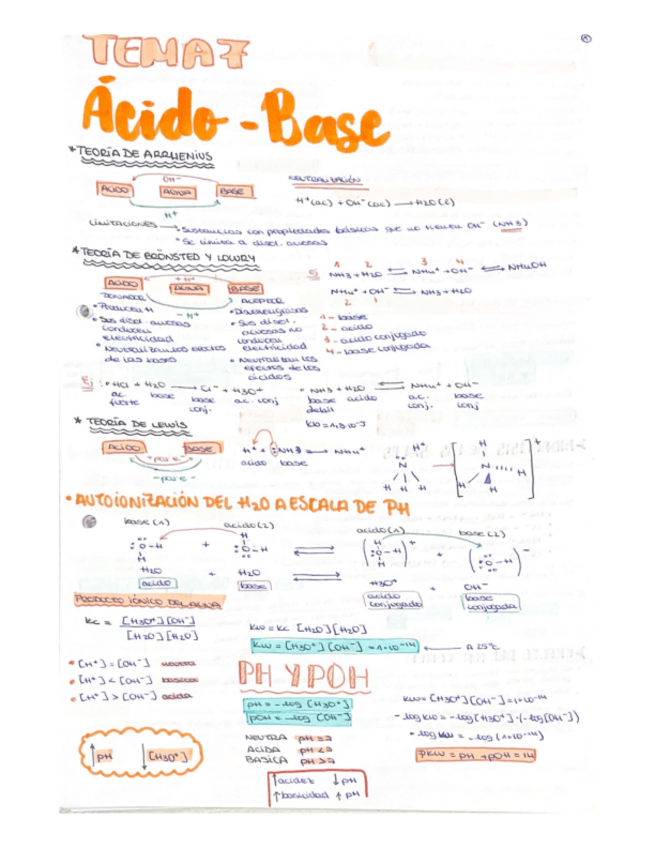 TEMA 7
Ácido-Base
* TEORÍA DE ARRHENIUS
OH-
ÁCIDO AGUA BASE
H+
NEUTRALIZACIÓN
H+(ac) + OH-(ac) → H2O(l)
LIMITACIONES → * Sustancias con propiedades básicas que no tienen OH- (NH3)
* Se limita a disol. acuosas
* TEORÍA DE BRÖNSTED Y LOWRY
+ H+
ÁCIDO AGUA BASE
- H+
DONADOR
ACEPTOR
• Producen H
• Sus disol. acuosas
conducen
electricidad
• Neutralizan los efectos
de las bases
• Sus disol.
acuosas no
conducen
electricidad
• Neutralizan los
efectos de los
ácidos
1 2 3 4
Ej NH3 + H2O ⇌ NH4+ + OH- ⇌ NH4OH
NH4+ + OH- ⇌ NH3 + H2O
2 1
1 - base
2 - ácido
3 - ácido conjugado
4 - base conjugada
Ej: • HCl + H2O → Cl- + H3O+
ac. fuerte base base conj. ac. conj
• NH3 + H2O ⇌ NH4+ + OH-
base débil ácido ac. conj. base conj
* TEORÍA DE LEWIS
ÁCIDO BASE
+ par e-
- par e-
H+ + :NH3 → NH4+
ácido base
H+
N
H H H
H
N
H H H
+
• AUTOIONIZACIÓN DEL H2O A ESCALA DE PH
base (1) ácido (2) ácido (1) base (2)
H2O + H2O ⇌ H3O+ + OH-
ácido base ácido conjugado base conjugada
PRODUCTO IÓNICO DEL AGUA
Kc = [H3O+][OH-]
[H2O][H2O]
Kw = Kc [H2O][H2O]
Kw = [H3O+][OH-] = 1·10-14 ← A 25ºC
• [H+] = [OH-] neutra
• [H+] < [OH-] básica
• [H+] > [OH-] ácida
PH Y POH
pH = -log [H3O+]
pOH = -log [OH-]
NEUTRA pH = 7
ÁCIDA pH < 7
BÁSICA pH > 7
↑ acidez ↓ pH
↑ basicidad ↑ pH
↑ pH ↓ [H3O+]
Kw = [H3O+][OH-] = 1·10-14
- log Kw = -log [H3O+]·(-log [OH-])
- log Kw = - log (1·10-14)
pKw = pH + pOH = 14